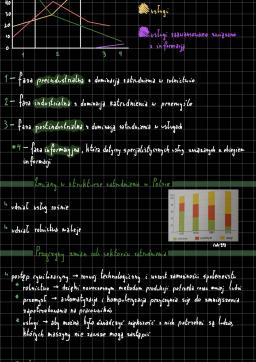 40
30
20
10
0
1 2 3 4
usługi
usługi zaawansowane związane
z informacją
1 - faza preindustrialna → dominacja zatrudnienia w rolnictwie
2 - faza industrialna → dominacja zatrudnienia w przemyśle
3 - faza postindustrialna → dominacja zatrudnienia w usługach
4 - faza informacyjna, która dotyczy specjalistycznych usług związanych z obiegiem
informacji
Zmiany w strukturze zatrudnienia w Polsce
udział usług rośnie
udział rolnictwa maleje
Przyczyny zmian roli sektorów zatrudnienia
postęp cywilizacyjny → rozwój technologiczny i wzrost zamożności społeczeństw
rolnictwo → dzięki nowoczesnym metodom produkcji potrzeba coraz mniej ludzi
przemysł → automatyzacja i komputeryzacja przyczynia się do zmniejszenia
zapotrzebowania na pracowników
usługi → aby można było świadczyć większość z nich potrzebni są ludzie,
których maszyny nie zawsze mogą zastąpić